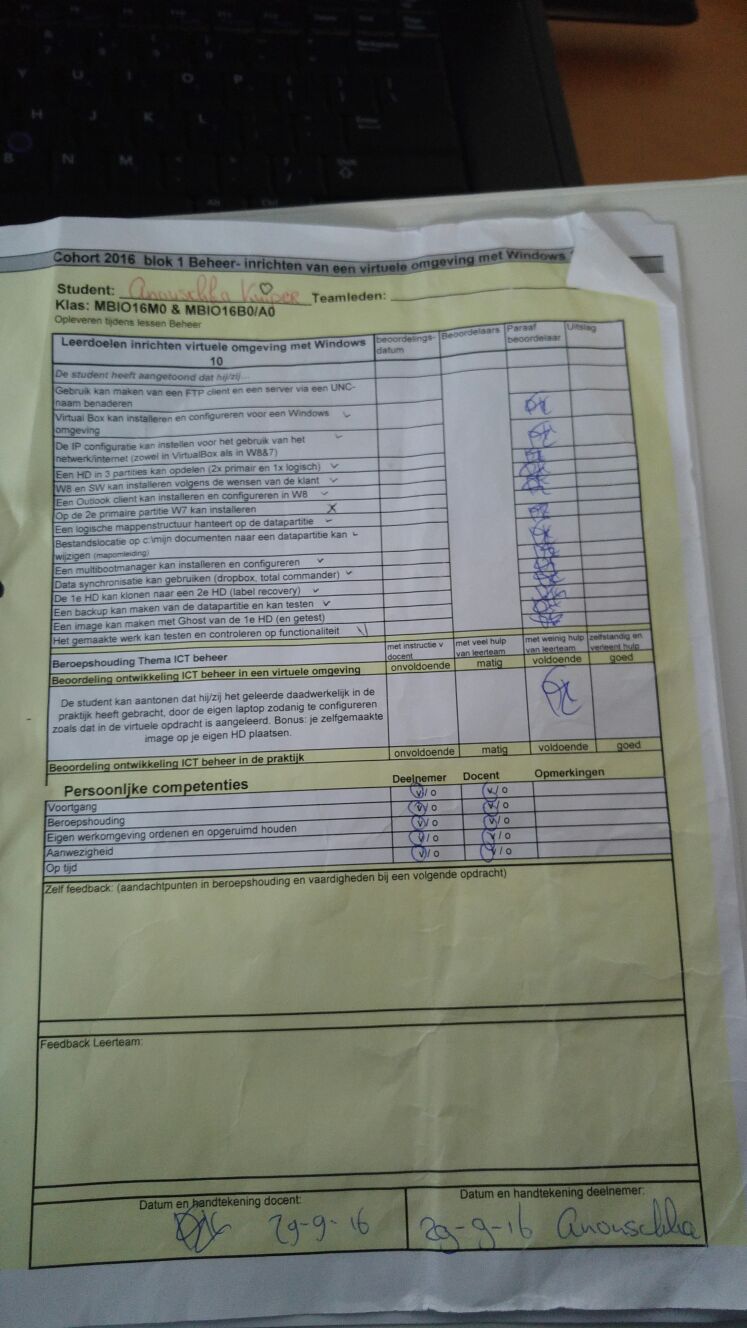 Cohort 2016 blok 1 Beheer- inrichten van een virtuele omgeving met Windows
Student: Anouschka Kuiper Teamleden:
Klas: MBIO16M0 & MBIO16B0/A0
Opleveren tijdens lessen Beheer
Leerdoelen inrichten virtuele omgeving met Windows 10
beoordelings-datum
Beoordelaars
Paraaf beoordelaar
Uitslag
De student heeft aangetoond dat hij/zij...
Gebruik kan maken van een FTP client en een server via een UNC-
naam benaderen
Virtual Box kan installeren en configureren voor een Windows
omgeving
De IP configuratie kan instellen voor het gebruik van het
netwerk/internet (zowel in VirtualBox als in W8&7)
Een HD in 3 partities kan opdelen (2x primair en 1x logisch)
W8 en SW kan installeren volgens de wensen van de klant
Een Outlook client kan installeren en configureren in W8
Op de 2e primaire partitie W7 kan installeren X
Een logische mappenstructuur hanteert op de datapartitie
Bestandslocatie op c:\mijn documenten naar een datapartitie kan
wijzigen (mapomleiding)
Een multibootmanager kan installeren en configureren
Data synchronisatie kan gebruiken (dropbox, total commander)
De 1e HD kan klonen naar een 2e HD (label recovery)
Een backup kan maken van de datapartitie en kan testen
Een image kan maken met Ghost van de 1e HD (en getest)
Het gemaakte werk kan testen en controleren op functionaliteit
Beroepshouding Thema ICT beheer
met instructie v docent
met veel hulp van leerteam
met weinig hulp van leerteam
zelfstandig en verleent hulp
Beoordeling ontwikkeling ICT beheer in een virtuele omgeving onvoldoende matig voldoende goed
De student kan aantonen dat hij/zij het geleerde daadwerkelijk in de
praktijk heeft gebracht, door de eigen laptop zodanig te configureren
zoals dat in de virtuele opdracht is aangeleerd. Bonus: je zelfgemaakte
image op je eigen HD plaatsen.
Beoordeling ontwikkeling ICT beheer in de praktijk onvoldoende matig voldoende goed
Persoonljke competenties Deelnemer Docent Opmerkingen
Voortgang v/o v/o
Beroepshouding v/o v/o
Eigen werkomgeving ordenen en opgeruimd houden v/o v/o
Aanwezigheid v/o v/o
Op tijd v/o v/o
Zelf feedback: (aandachtpunten in beroepshouding en vaardigheden bij een volgende opdracht)
Feedback Leerteam:
Datum en handtekening docent:
29-9-16
Datum en handtekening deelnemer:
29-9-16 Anouschka